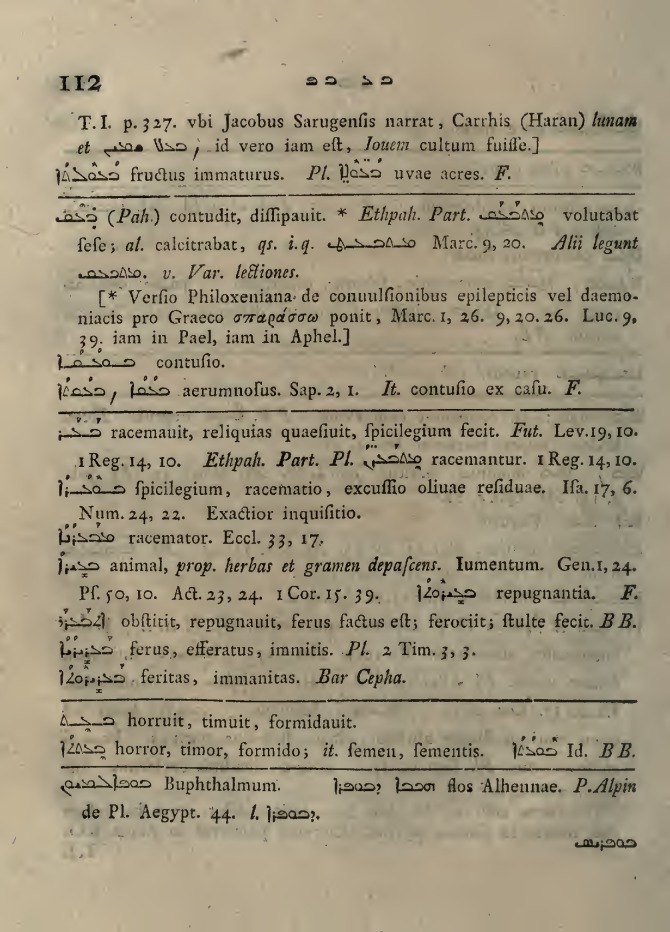 112 ܒܥ ܒܦ
T. I. p. 327. vbi Jacobus Sarugenſis narrat, Carrhis (Haran) lunam
et ܒܥܠ ܫܡܝܢ, id vero iam eſt, Iouem cultum fuiſſe.]
fructus immaturus. Pl. uvae acres. F.
ܒܥܛ (Pah.) contudit, diſſipauit. * Ethpah. Part. ܡܬܒܥܛ volutabat
ſeſe; al. calcitrabat, qs. i. q. Marc. 9, 20. Alii legunt
v. Var. lectiones.
[* Verſio Philoxeniana de conuulſionibus epilepticis vel daemo-
niacis pro Graeco σπαράσσω ponit, Marc. 1, 26. 9, 20. 26. Luc. 9,
39. iam in Pael, iam in Aphel.]
contuſio.
aerumnoſus. Sap. 2, 1. It. contuſio ex caſu. F.
ܒܥܪ racemauit, reliquias quaeſiuit, ſpicilegium fecit. Fut. Lev. 19, 10.
1 Reg. 14, 10. Ethpah. Part. Pl. ܡܬܒܥܪܝܢ racemantur. 1 Reg. 14, 10.
ܒܘܥܪܐ ſpicilegium, racematio, excuſſio oliuae reſiduae. Iſa. 17, 6.
Num. 24, 22. Exactior inquiſitio.
ܡܒܥܪܢܐ racemator. Eccl. 33, 17.
ܒܥܝܪܐ animal, prop. herbas et gramen depaſcens. Iumentum. Gen. 1, 24.
Pſ. 50, 10. Act. 23, 24. 1 Cor. 15. 39. ܒܥܝܪܘܬܐ repugnantia. F.
ܐܬܒܥܪܪ obſtitit, repugnauit, ferus factus eſt; ferociit; ſtulte fecit. B B.
ܒܥܪܝܪܝܐ ferus, efferatus, immitis. Pl. 2 Tim. 3, 3.
ܒܥܪܝܪܘܬܐ feritas, immanitas. Bar Cepha.
ܒܥܬ horruit, timuit, formidauit.
ܒܥܬܬܐ horror, timor, formido; it. ſemen, ſementis. ܒܘܥܬܐ Id. B B.
Buphthalmum. ܗܒܒܐ ܕܒܘܦܪܐ flos Alhennae. P. Alpin
de Pl. Aegypt. 44. l. ܕܟܘܦܪܐ.